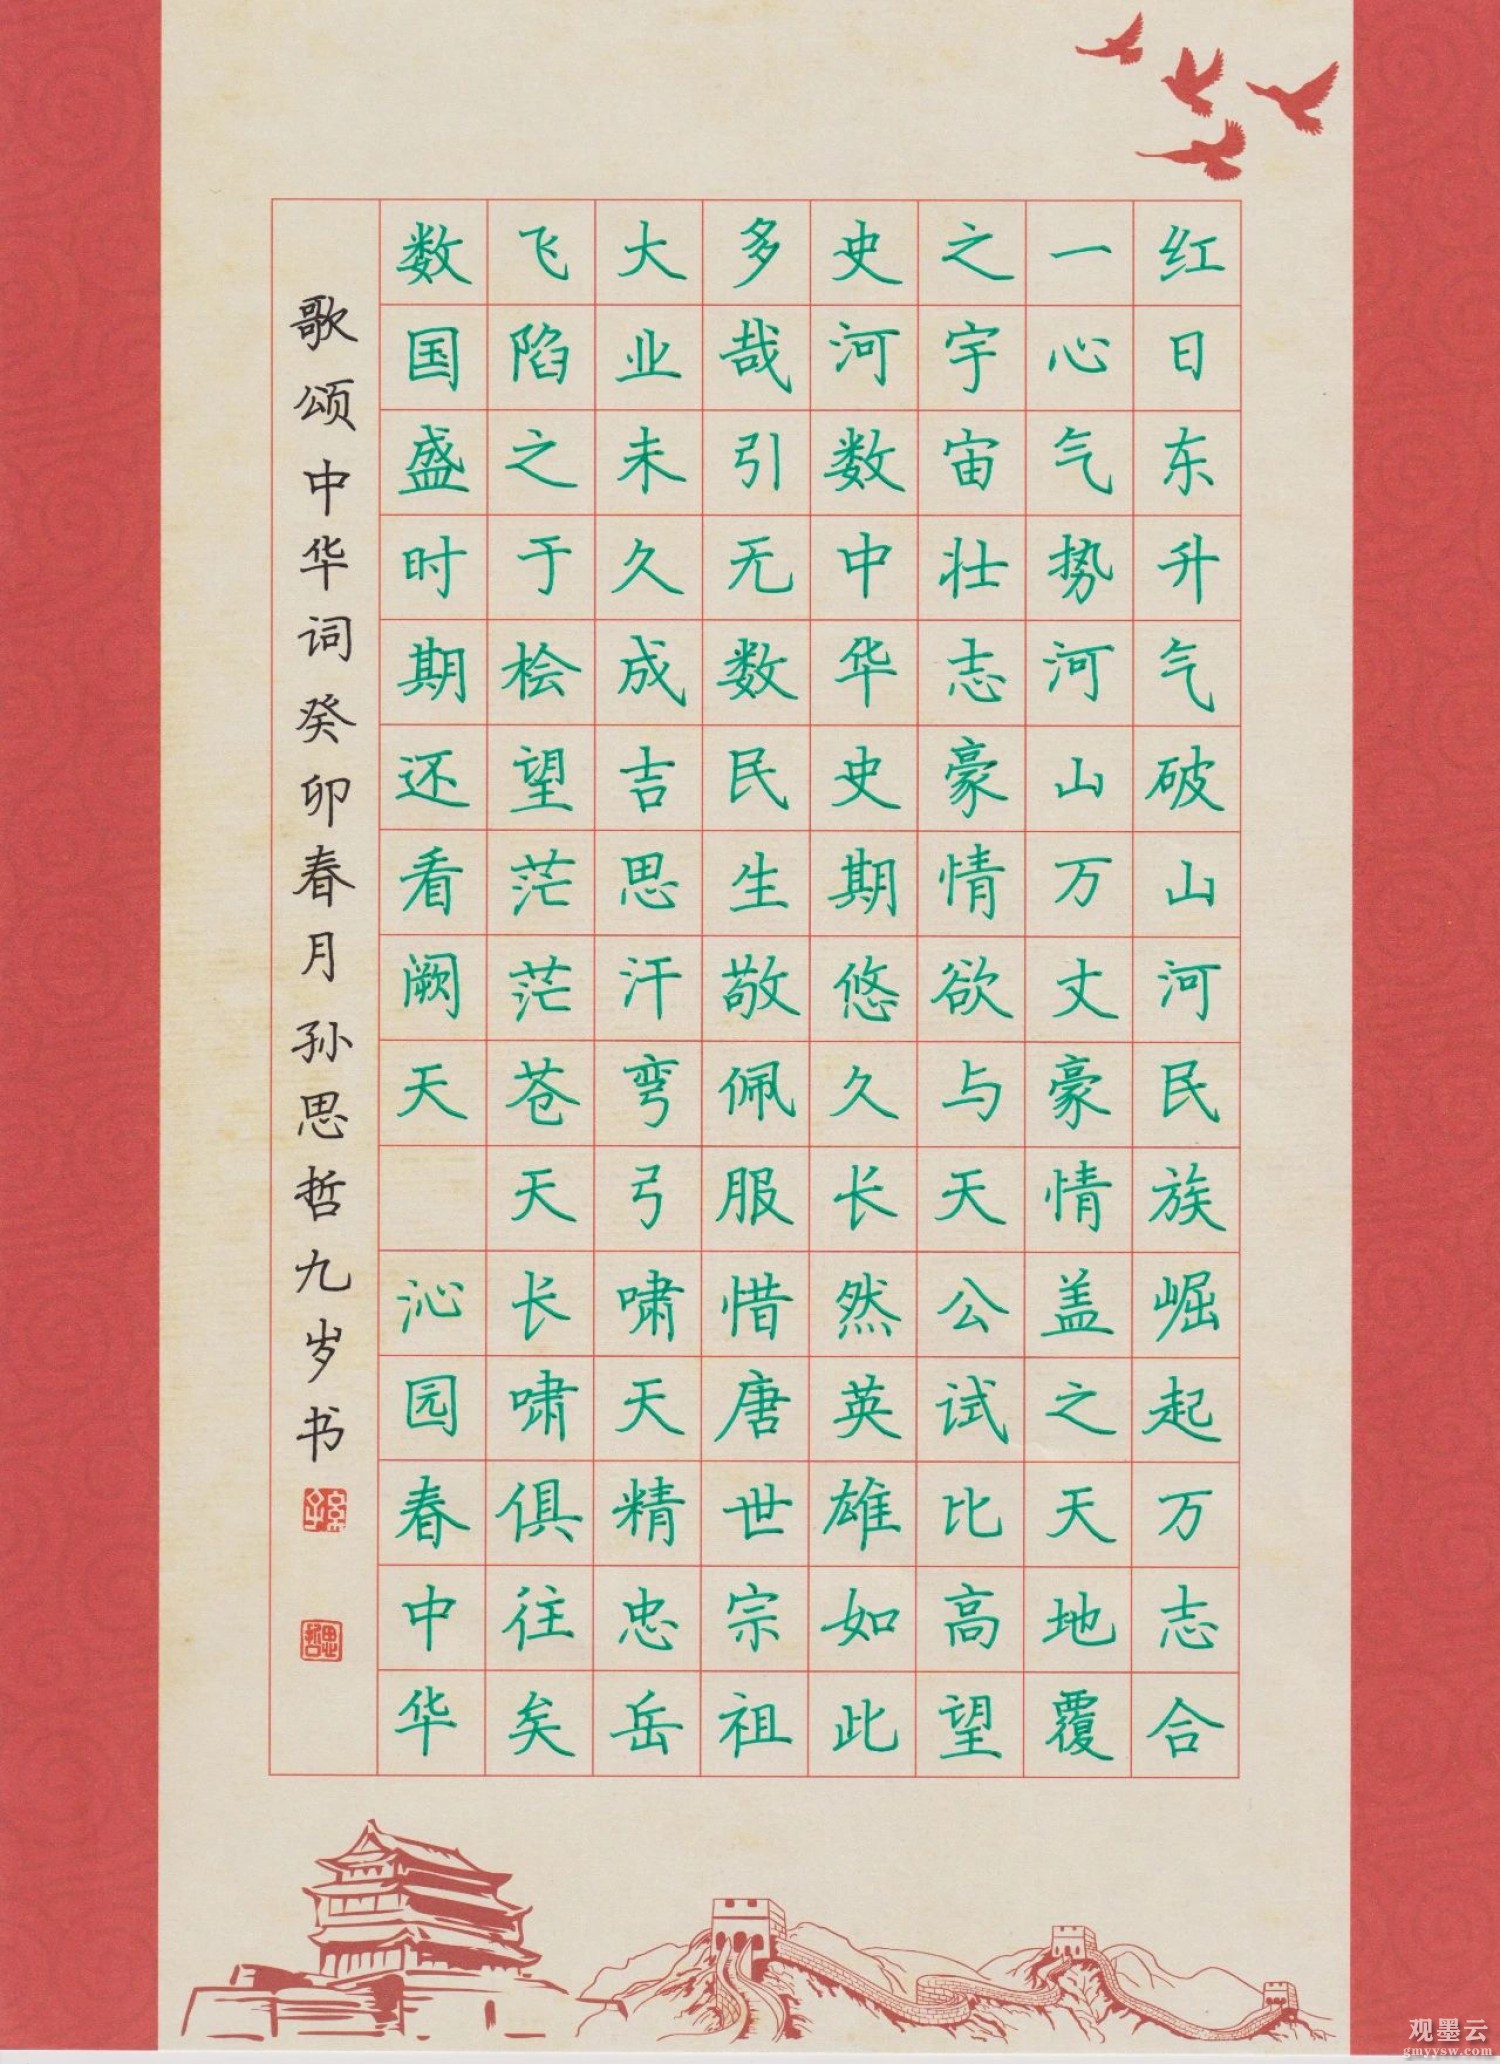 红日东升气破山河民族崛起万志合
一心气势河山万丈豪情盖之天地覆
之宇宙壮志豪情欲与天公试比高望
史河数中华史期悠久长然英雄如此
多哉引无数民生敬佩服惜唐世宗祖
大业未久成吉思汗弯弓啸天精忠岳
飞陷之于桧望茫茫苍天长啸俱往矣
数国盛时期还看阙天 沁园春中华
歌颂中华词癸卯春月孙思哲九岁书
孙
思哲
观墨云
gmyysw.com